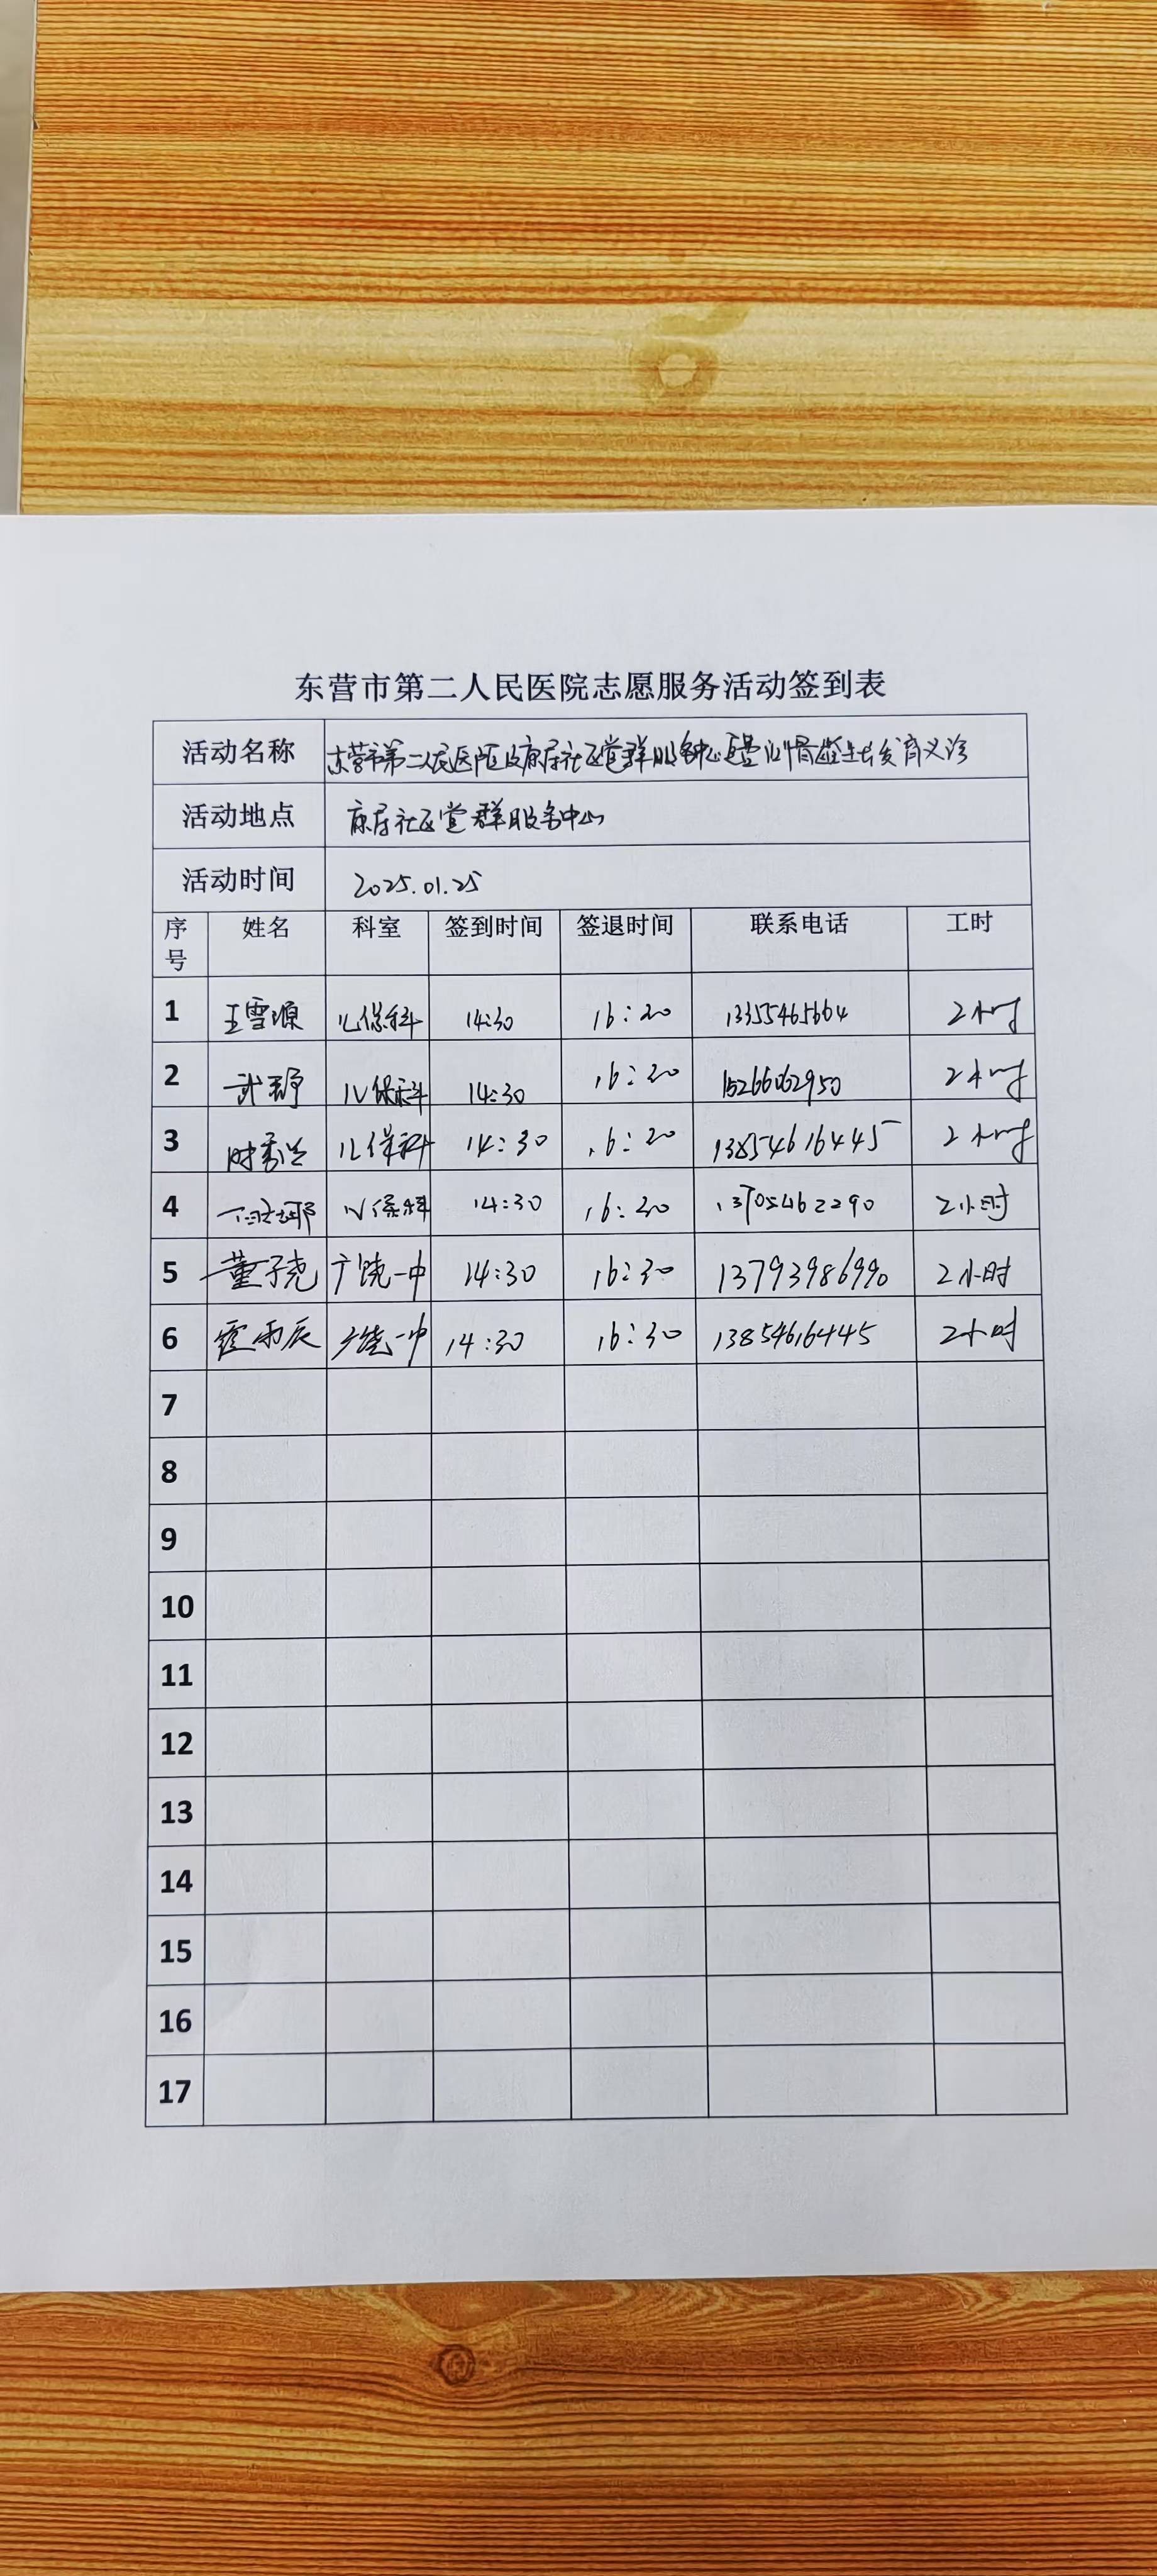 东营市第二人民医院志愿服务活动签到表
活动名称 东营市第二人民医院 康居社区党群服务中心 骨龄生长发育义诊
活动地点 康居社区党群服务中心
活动时间 2025.01.25
序号 姓名 科室 签到时间 签退时间 联系电话 工时
1 王雪源 儿保科 14:30 16:30 13355465664 2小时
2 儿保科 14:30 16:30 15266062950 2小时
3 儿保科 14:30 16:30 13854616445 2小时
4 儿保科 14:30 16:30 2小时
5 董子尧 广饶一中 14:30 16:30 13793986990 2小时
6 雨辰 广饶一中 14:30 16:30 13854616445 2小时
7
8
9
10
11
12
13
14
15
16
17